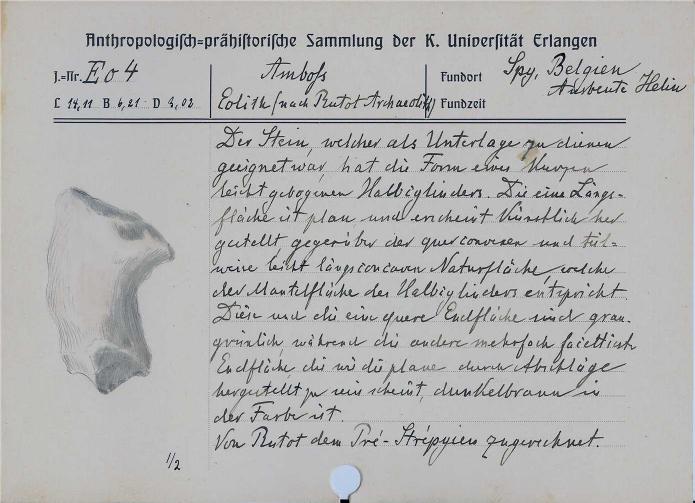 Anthropologisch=prähistorische Sammlung der K. Universität Erlangen
J.=Nr. E o 4
Amboss
Fundort Spy, Belgien
Ausbeute Helin
L 14,11 B 6,21 D 3,02
Eolith (nach Rutot Archaeolith)
Fundzeit
Der Stein, welcher als Unterlage zu dienen
geeignet war, hat die Form eines kurzen
leicht gebogenen Halbzylinders. Die eine Längs-
fläche ist plan und erscheint künstlich her
gestellt, gegenüber der querconvexen und teil-
weise leicht längsconcaven Naturfläche, welche
der Mantelfläche des Halbzylinders entspricht.
Diese und die eine quere Endfläche sind grau-
grünlich, während die andere mehrfach facettierte
Endfläche, die wie die plane durch Abschläge
hergestellt zu sein scheint, dunkelbraun in
der Farbe ist.
Von Rutot dem Pré-Strépyien zugerechnet.
1/2